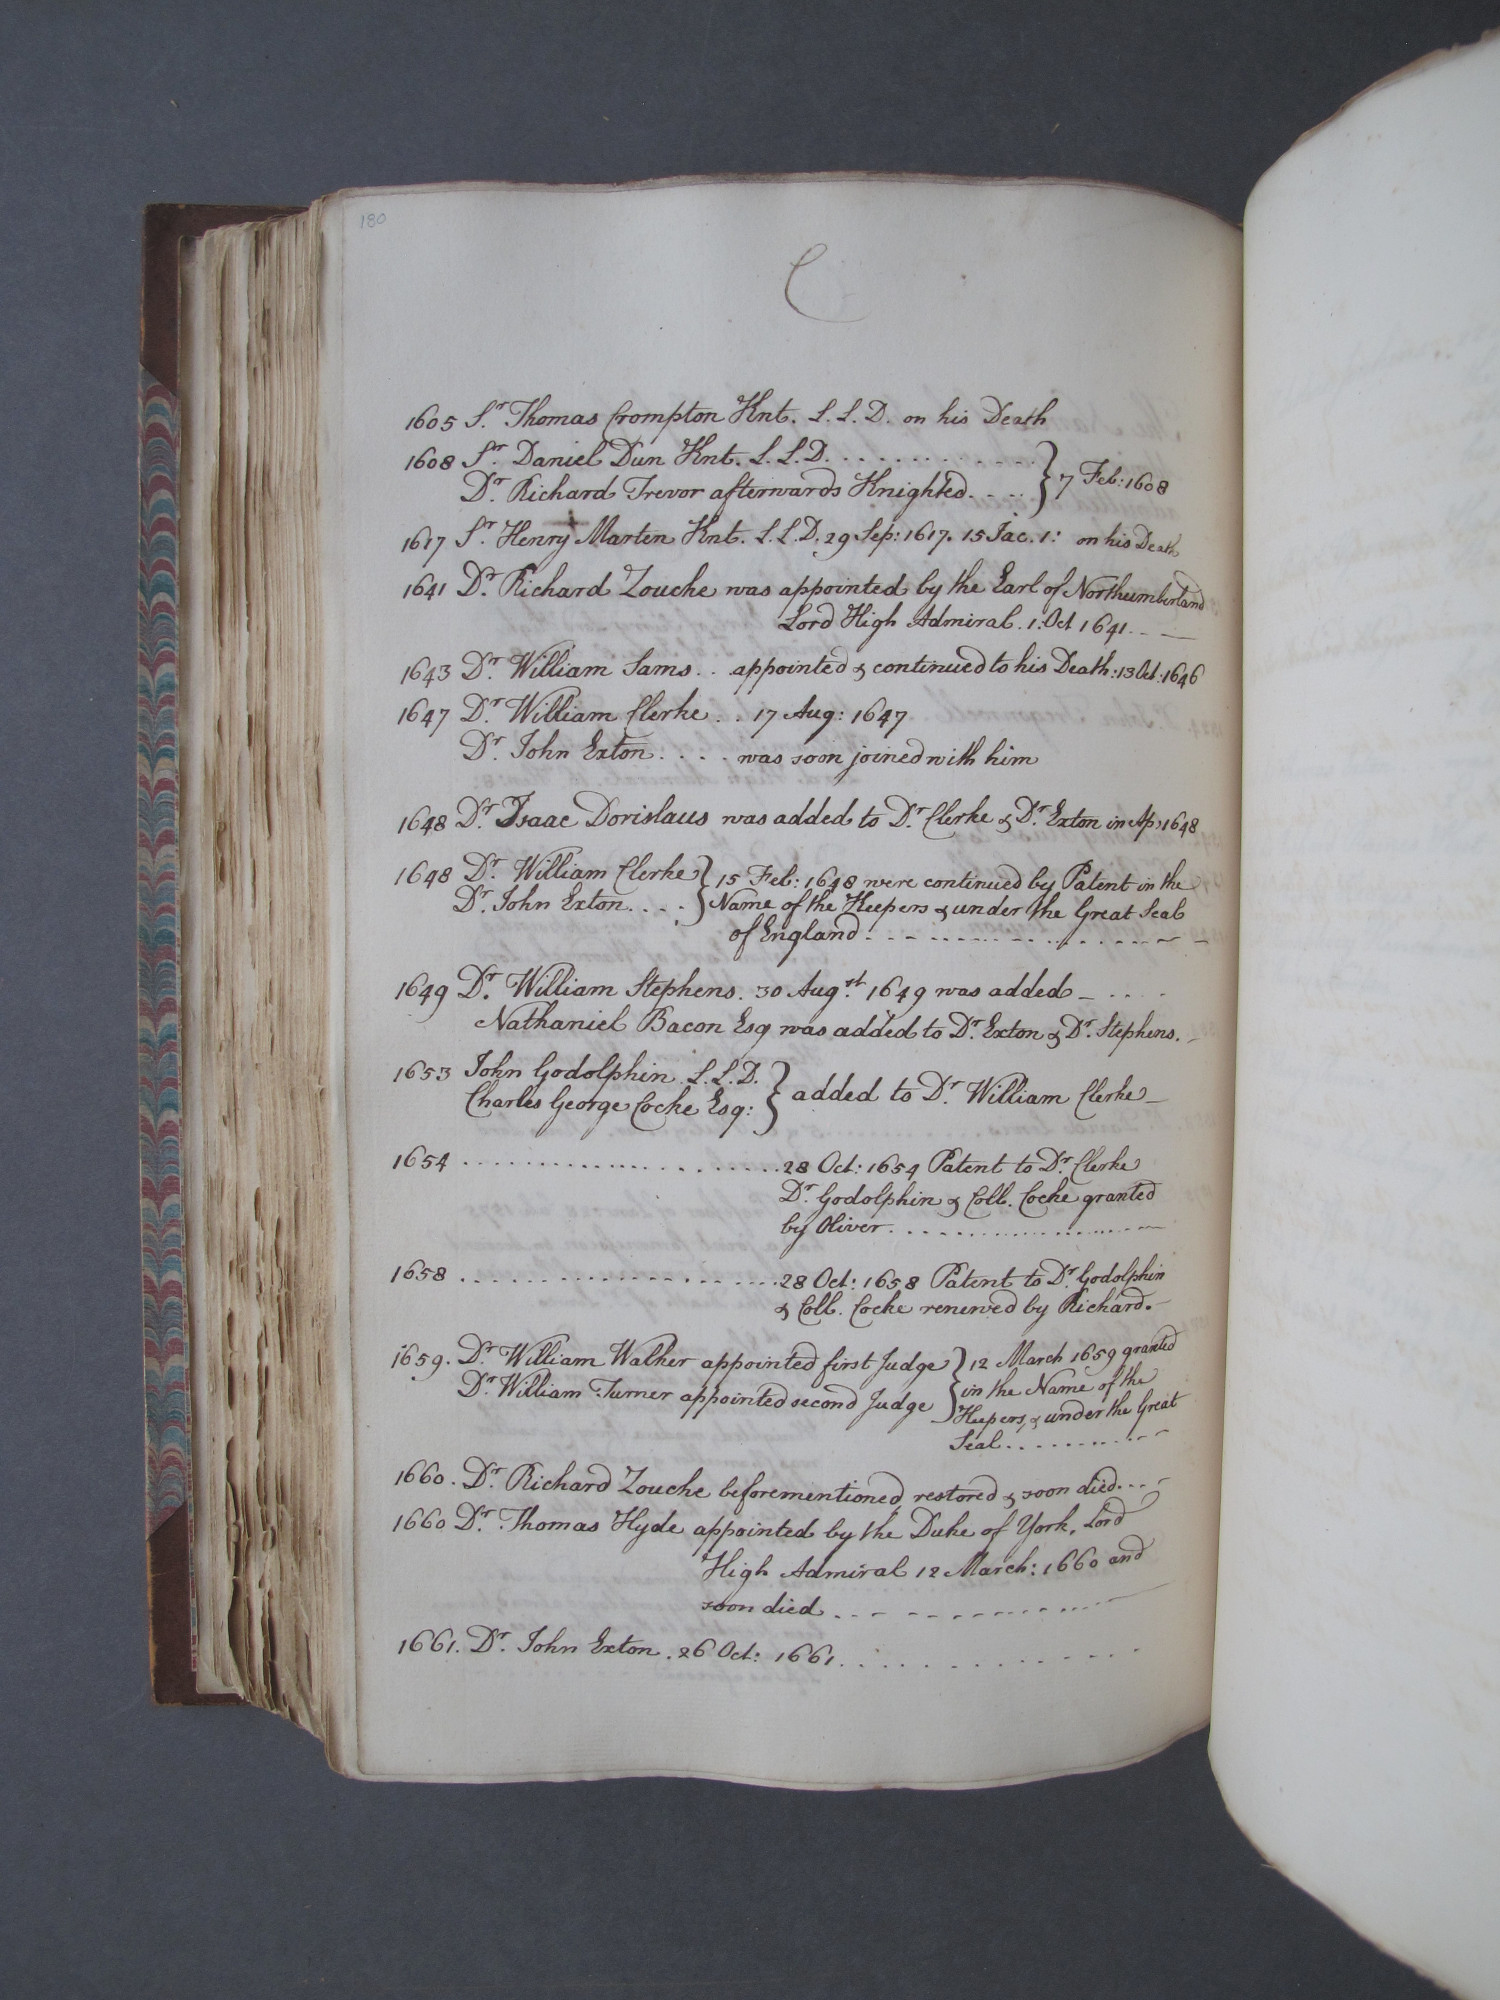 180
C
1605 Sr. Thomas Crompton Knt. L. L. D. on his Death
1608 Sr. Daniel Dun Knt. L. L. D. . . . . . . . . . . . .
Dr. Richard Trevor afterwards Knighted. . . . } 7 Feb: 1608
1617 Sr. Henry Marten Knt. L. L. D. 29 Sep: 1617. 15 Jac. 1: on his Death
1641 Dr. Richard Zouche was appointed by the Earl of Northumberland
Lord High Admiral. 1: Oct 1641. . —
1643 Dr. William Sams. . appointed & continued to his Death: 13 Oct: 1646
1647 Dr. William Clerke . . 17 Aug: 1647
Dr. John Exton . . . . was soon joined with him
1648 Dr. Isaac Dorislaus was added to Dr. Clerke & Dr. Exton in Ap: 1648
1648 Dr. William Clerke } 15 Feb: 1648 were continued by Patent in the
Dr. John Exton. . . . } Name of the Keepers & under the Great Seal
of England. . . . . . . . . . . . . . . .
1649 Dr. William Stephens. 30 Augst. 1649 was added — . . . .
Nathaniel Bacon Esq was added to Dr. Exton & Dr. Stephens. —
1653 John Godolphin L. L. D. } added to Dr. William Clerke —
Charles George Cocke Esq: }
1654 . . . . . . . . . . . . . . . . . . . . 28 Oct: 1654 Patent to Dr. Clerke
Dr. Godolphin & Coll. Cocke granted
by Oliver. . . . . . . . . . . . . . . . .
1658 . . . . . . . . . . . . . . . . . . . . 28 Oct: 1658 Patent to Dr. Godolphin
& Coll. Cocke renewed by Richard. —
1659. Dr. William Walker appointed first Judge } 12 March 1659 granted
Dr. William Turner appointed second Judge } in the Name of the
Keepers, & under the Great
Seal. . . . . . . . . . . .
1660. Dr. Richard Zouche beforementioned restored & soon died. . . -
1660 Dr. Thomas Hyde appointed by the Duke of York, Lord
High Admiral 12 March: 1660 and
soon died . . . . . . . . . . . . . . .
1661. Dr. John Exton. 26 Oct: 1661. . . . . . . . . . . . .